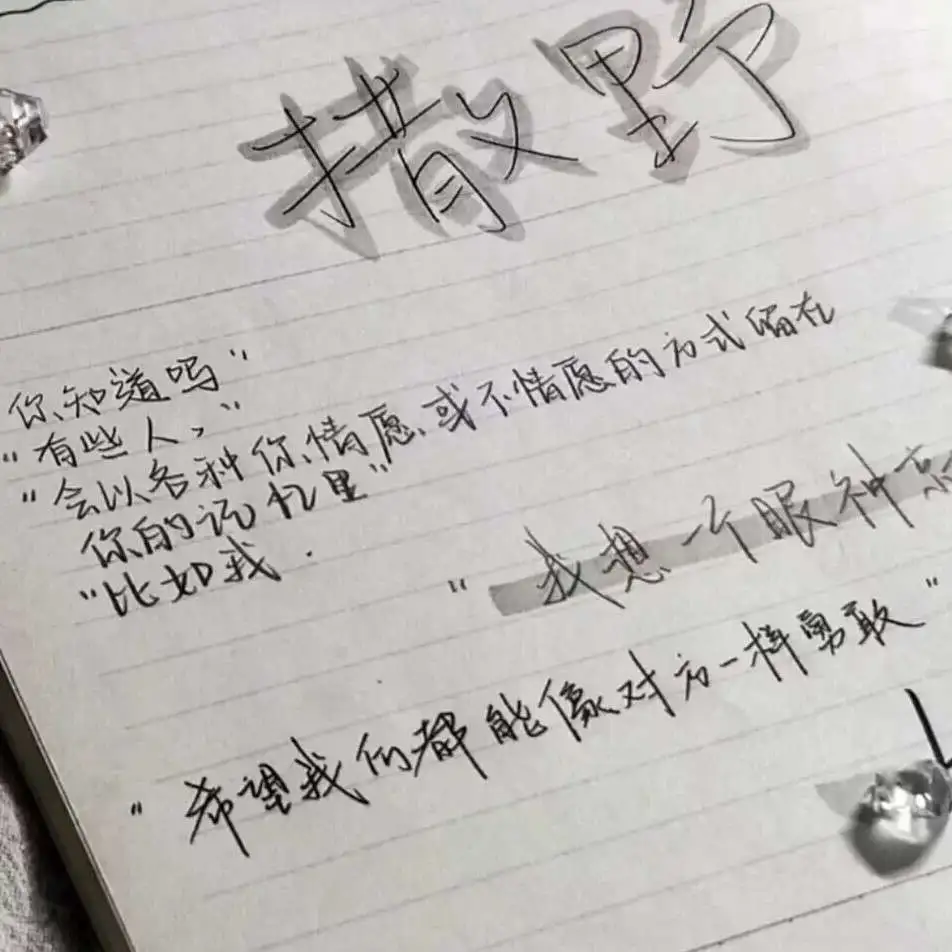 撒野
你知道吗"
"有些人,"
"会以各种你情愿、或不情愿的方式留在
你的记忆里"
"比如我.
"我想一个眼神
"希望我们都能像对方一样勇敢"